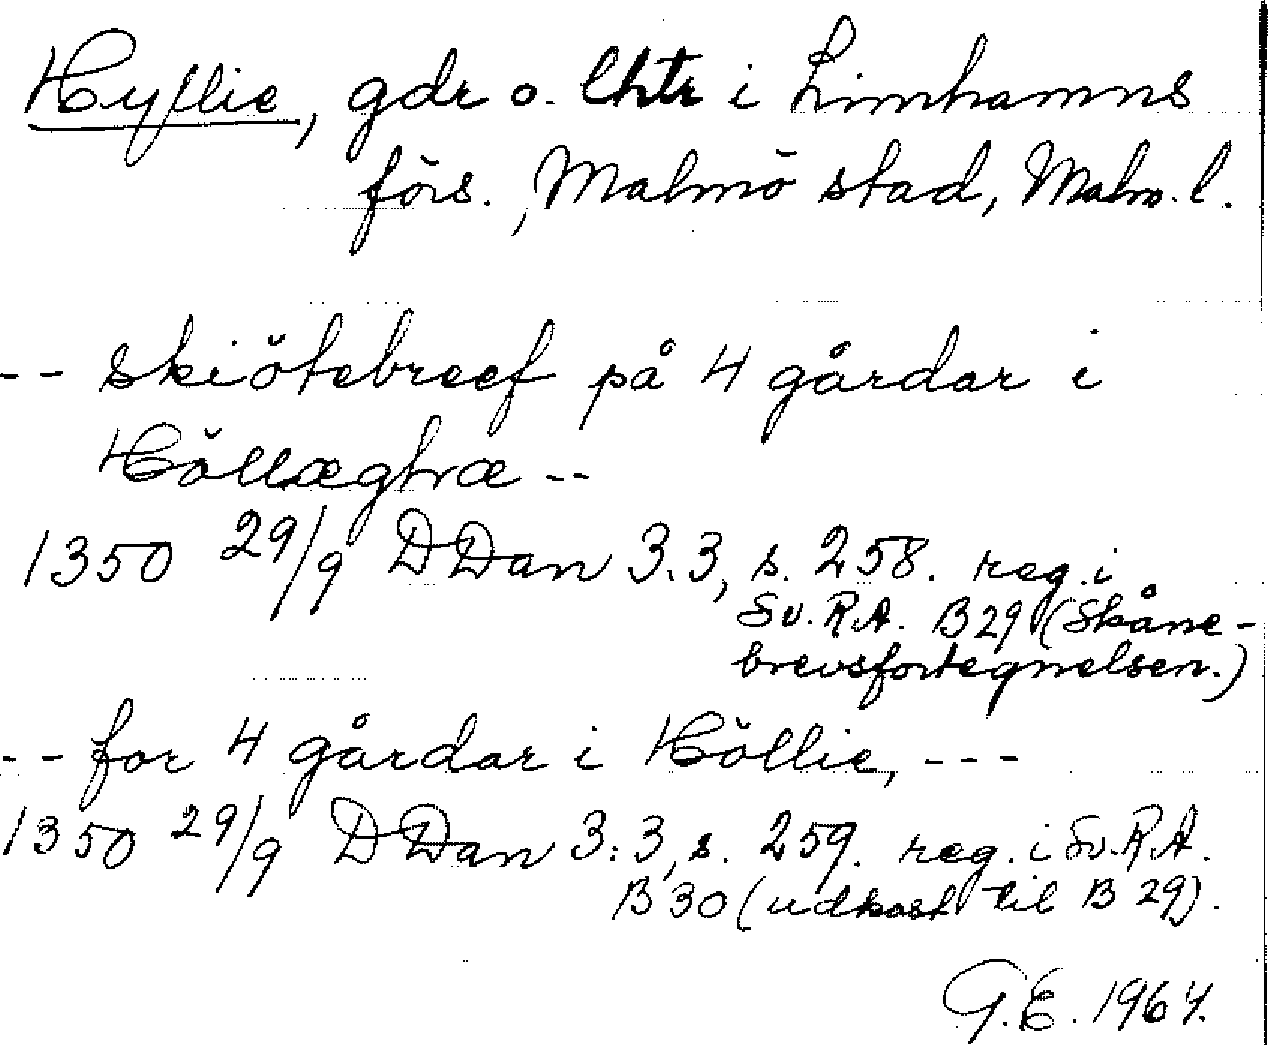 Hyllie, gdr o. lhtr i Limhamns
förs., Malmö stad, Malm. l.
-- skiötebreef på 4 gårdar i
Höllæghræ --
1350 29/9 DDan 3.3, s. 258. reg. i
Sv. R.A. B29 (Skåne-
brevsfortegnelsen.)
-- for 4 gårdar i Höllie, ---
1350 29/9 DDan 3:3, s. 259. reg. i Sv. R.A.
B30 (udkast til B 29).
G.E. 1964.